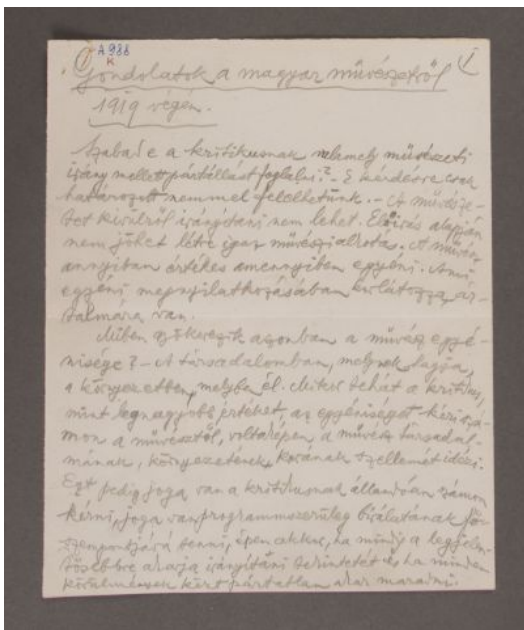 A 988
K
1
Gondolatok a magyar művészetről
1919 végén.
Szabad e a kritikusnak valamely művészeti
irány mellett pártállást foglalni? - E kérdésre csak
határozott nemmel felelhetünk. - A művésze-
tet kivülről irányitani nem lehet. Előirás alapján
nem jöhet létre igaz művészi alkotás. A művész
annyiban értékes amennyiben egyéni. Ami
egyéni megnyilatkozásában korlátozza ár-
talmára van.
Miben gyökerezik azonban a művész egyé-
nisége? - A társadalomban, melynek tagja,
a környezetben, melyben él. Mikor tehát a kritikus,
mint legnagyobb értéket, az egyéniséget kéri szá-
mon a művésztől, voltaképen a művész társadal-
mának, környezetének, korának szellemét idézi.
Ezt pedig joga van a kritikusnak állandóan számon
kérni, joga van programmszerüleg birálatának fő-
szempontjává tenni, épen akkor, ha mindig a legjelen-
tősebbre akarja irányitani tekintetét és ha minden
körülmények közt pártatlan akar maradni.